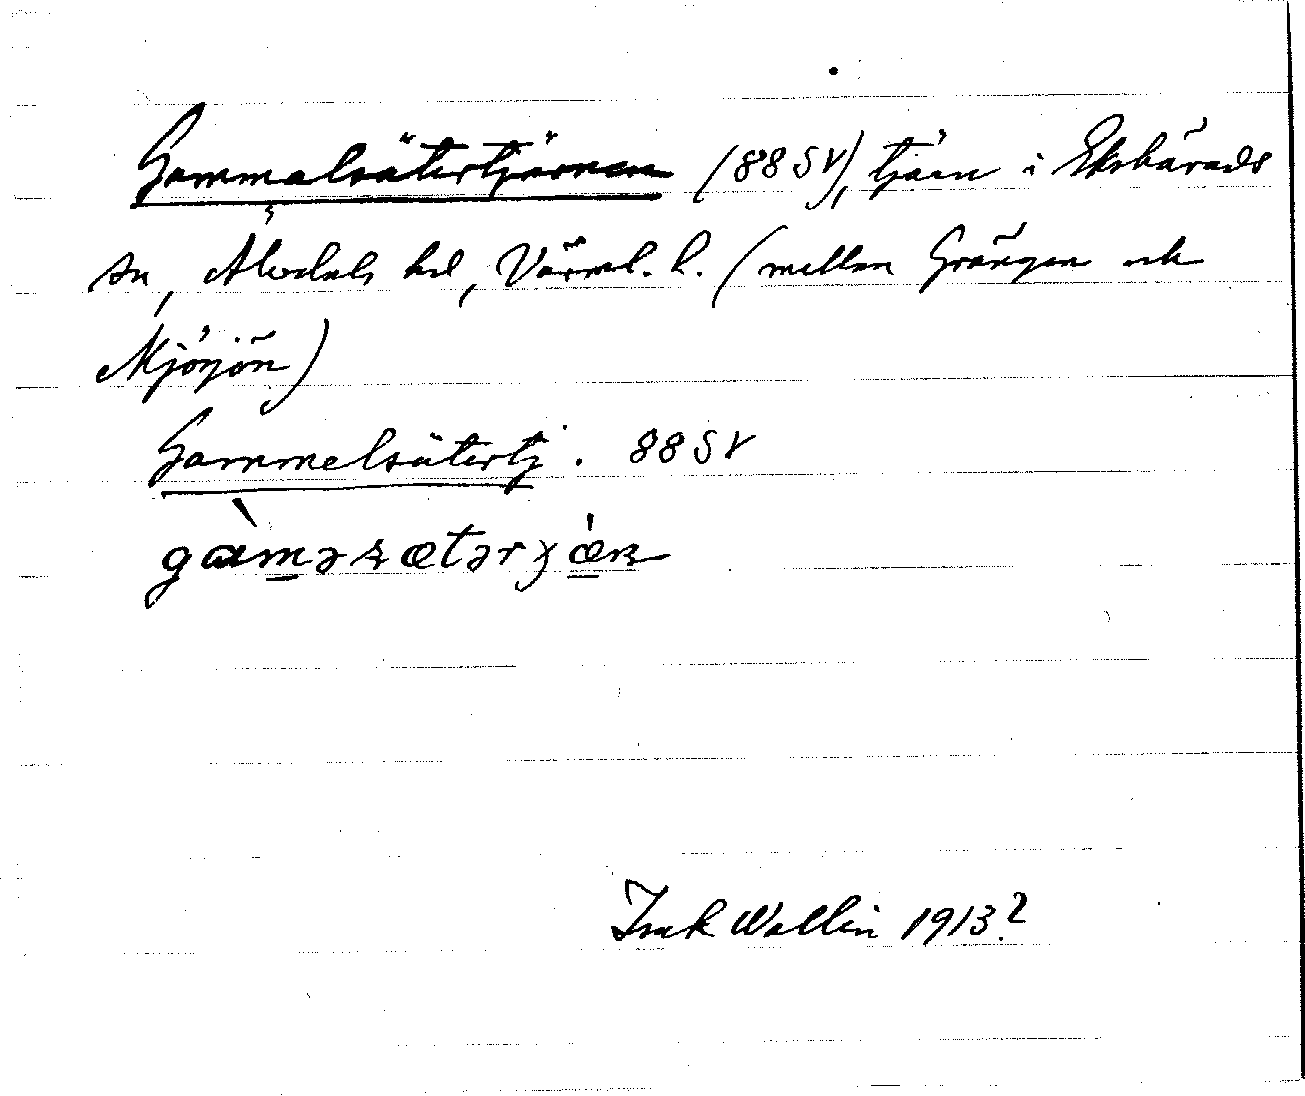 Gammalsätertjärnen (88 SV), tjärn i Ekshärads
sn, Älvdals hd, Värml. l. (mellan Grängen och
Mjösjön)
Gammelsätertj. 88 SV
Isak Wallin 1913?